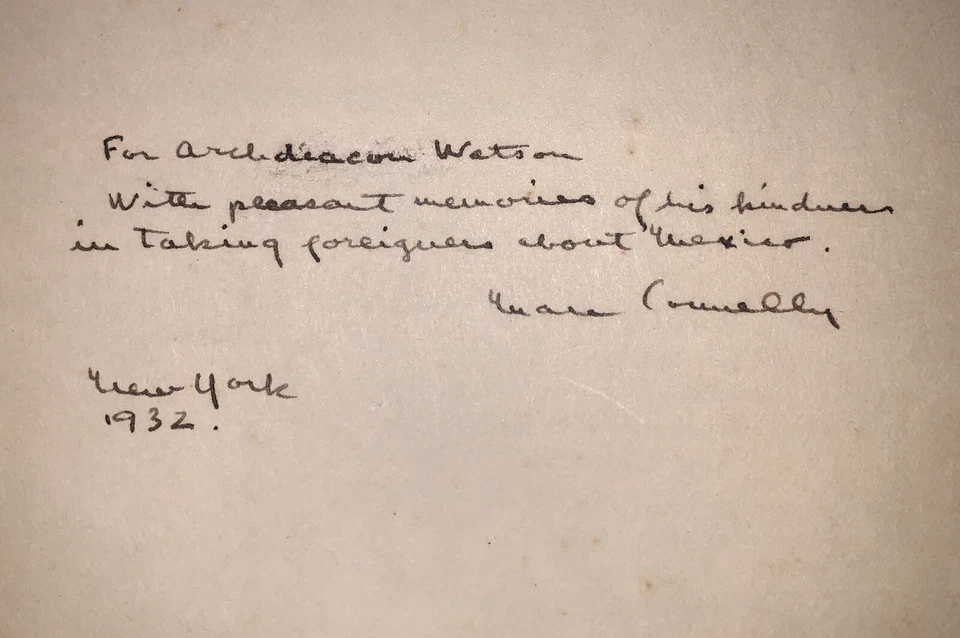 For Archdeacon Watson
With pleasant memories of his kindness
in taking foreigners about Mexico.
Marc Connelly
New York
1932.